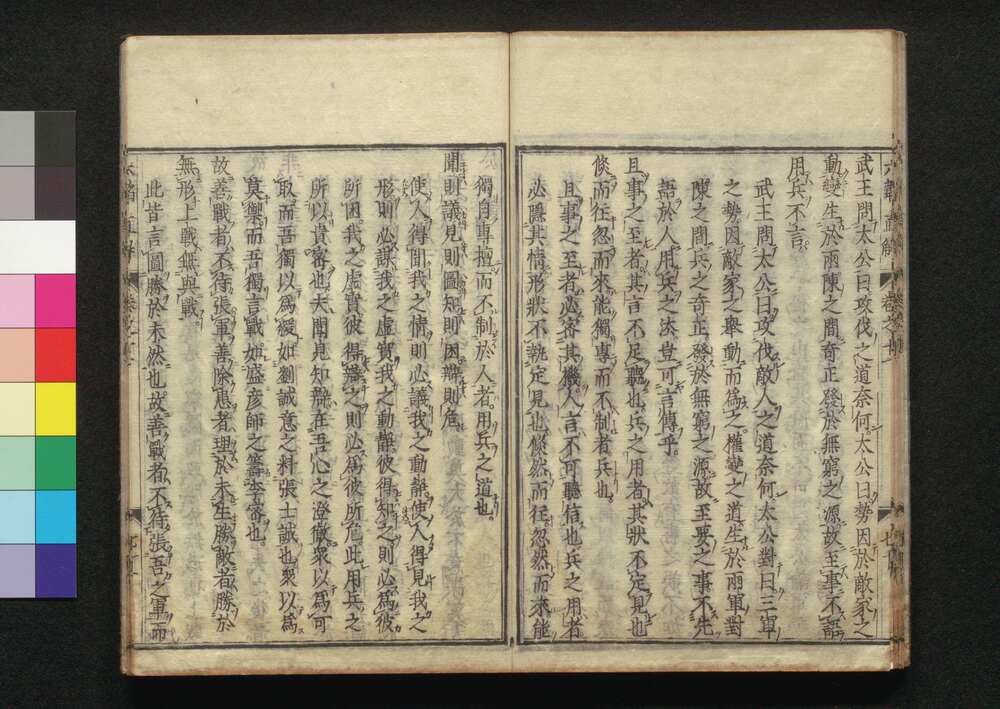 武王問太公曰攻伐之道奈何太公曰勢因於敵家之
動變生於兩陳之間奇正發於無窮之源故至事不語
用兵不言。
武王問太公曰攻伐敵人之道奈何太公對曰三軍
之勢因敵家之舉動而為之權變之道生於兩軍對
陳之間兵之奇正發於無窮之源故至要之事不先
語於人用兵之法豈可言傳乎。
且事之至者其言不足聽也兵之用者其狀不定見也
倐而徃忽而來能獨專而不制者兵也。
且事之至者必密其機人言不可聽信也兵之用者
必隱其情形狀不執定見也倐然而徃忽然而來能
獨自專擅而不制於人者。用兵之道也。
聞則議見則圖知則困辯則危
使人得聞我之情則必議我之動靜。使人得見我之
形則必謀我之虛實我之動靜彼得知之則必為彼
所困。我之虛實彼得辯之則必為彼所危此用兵之
所以貴密也夫聞見知辯在吾心之澄徹衆以為可
敢而吾獨以為疑如劉誠意之料張士誠也衆以為
莫禦而吾獨言戰如盛彦師之籌李密也。
故善戰者不待張軍善除患者理於未生勝敵者勝於
無形上戰無與戰
此皆言圖勝於未然也故善戰者不待張吾之軍而